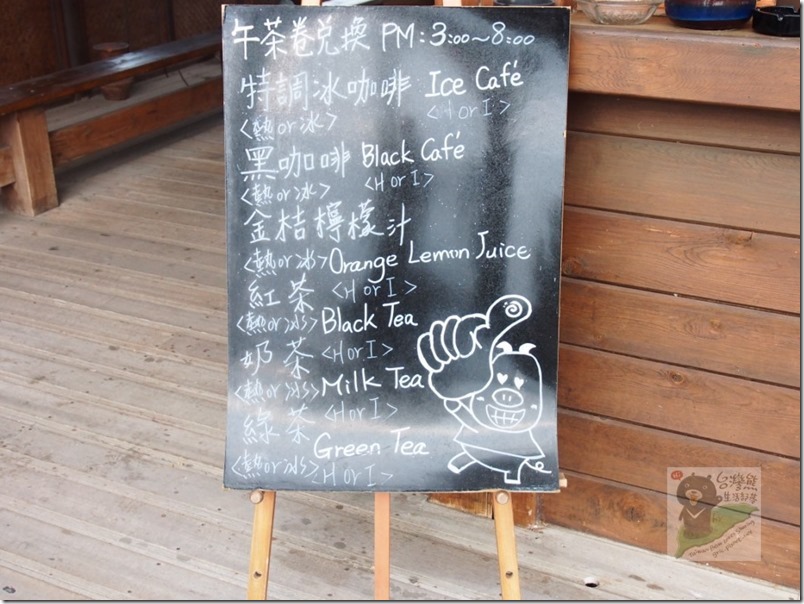 午茶卷兌換 PM:3:00~8:00
特調冰咖啡 Ice Café
<熱or冰> <H or I>
黑咖啡 Black Café
<熱or冰> <H or I>
金桔檸檬汁
<熱or冰> Orange Lemon Juice
紅茶 <H or I>
<熱or冰> Black Tea
奶茶 <H or I>
<熱or冰> Milk Tea
綠茶 <H or I>
Green Tea
<熱or冰> <H or I>
台灣熊
生活記事